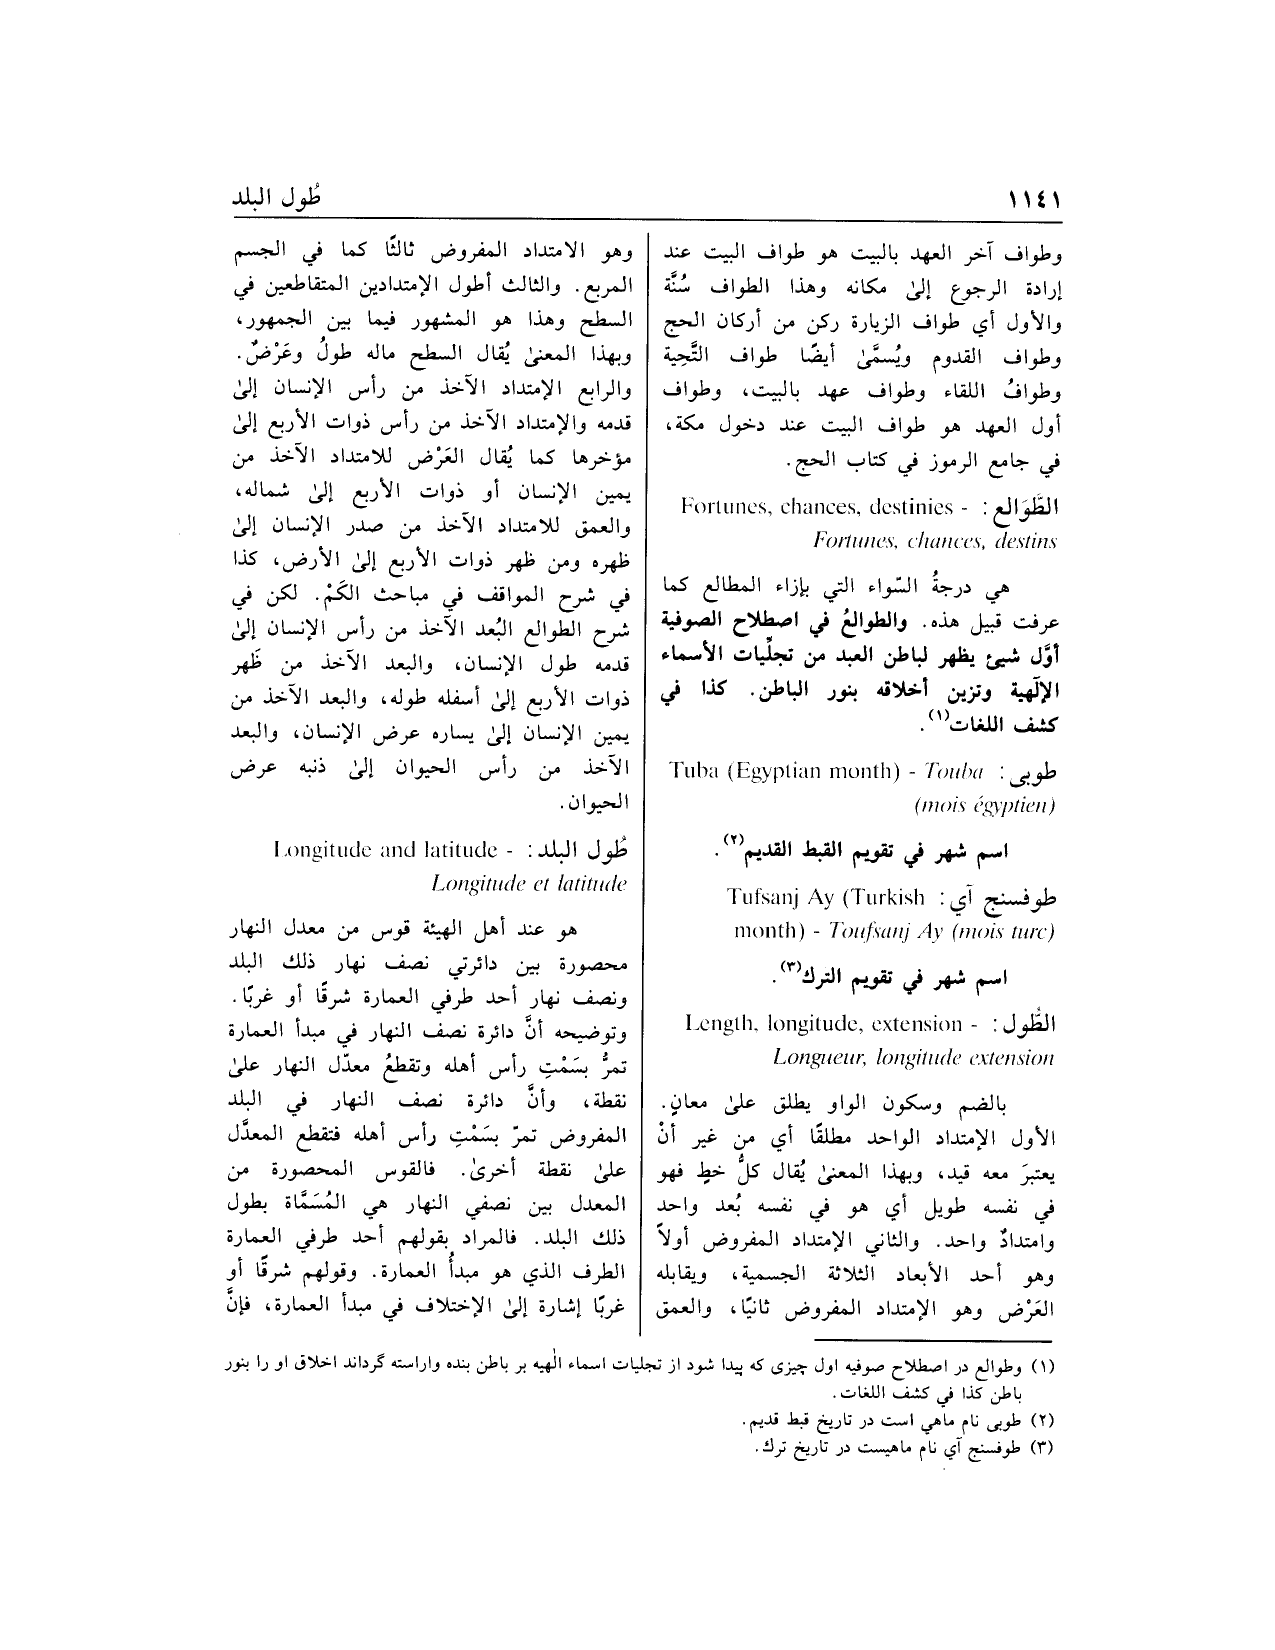 ١١٤١
طُول البلد
وطواف آخر العهد بالبيت هو طواف البيت عند
إرادة الرجوع إلىٰ مكانه وهذا الطواف سُنَّة
والأول أي طواف الزيارة ركن من أركان الحج
وطواف القدوم ويُسمَّىٰ أيضًا طواف التَّحِية
وطوافُ اللقاء وطواف عهد بالبيت، وطواف
أول العهد هو طواف البيت عند دخول مكة،
في جامع الرموز في كتاب الحج.
الطَّوَالع: Fortunes, chances, destinies -
Fortunes, chances, destins
هي درجةُ السّواء التي بإزاء المطالع كما
عرفت قبيل هذه. والطوالعُ في اصطلاح الصوفية
أوَّل شيئ يظهر لباطن العبد من تجلِّيات الأسماء
الإلٓهية وتزين أخلاقه بنور الباطن. كذا في
كشف اللغات(١).
طوبى: Tuba (Egyptian month) - Touba
(mois égyptien)
اسم شهر في تقويم القبط القديم(٢).
طوفسنج آي: Tufsanj Ay (Turkish
month) - Toufsanj Ay (mois turc)
اسم شهر في تقويم الترك(٣).
الطُّول: Length, longitude, extension -
Longueur, longitude extension
بالضم وسكون الواو يطلق علىٰ معانٍ.
الأول الإمتداد الواحد مطلقًا أي من غير أنْ
يعتبرَ معه قيد، وبهذا المعنىٰ يُقال كلُّ خطٍ فهو
في نفسه طويل أي هو في نفسه بُعد واحد
وامتدادٌ واحد. والثاني الإمتداد المفروض أولاً
وهو أحد الأبعاد الثلاثة الجسمية، ويقابله
العَرْض وهو الإمتداد المفروض ثانيًا، والعمق
وهو الامتداد المفروض ثالثًا كما في الجسم
المربع. والثالث أطول الإمتدادين المتقاطعين في
السطح وهذا هو المشهور فيما بين الجمهور،
وبهذا المعنىٰ يُقال السطح ماله طولُ وعَرْضٌ.
والرابع الإمتداد الآخذ من رأس الإنسان إلىٰ
قدمه والإمتداد الآخذ من رأس ذوات الأربع إلىٰ
مؤخرها كما يُقال العَرْض للامتداد الآخذ من
يمين الإنسان أو ذوات الأربع إلىٰ شماله،
والعمق للامتداد الآخذ من صدر الإنسان إلىٰ
ظهره ومن ظهر ذوات الأربع إلىٰ الأرض، كذا
في شرح المواقف في مباحث الكَمْ. لكن في
شرح الطوالع البُعد الآخذ من رأس الإنسان إلىٰ
قدمه طول الإنسان، والبعد الآخذ من ظَهر
ذوات الأربع إلىٰ أسفله طوله، والبعد الآخذ من
يمين الإنسان إلىٰ يساره عرض الإنسان، والبعد
الآخذ من رأس الحيوان إلىٰ ذنبه عرض
الحيوان.
طُول البلد: Longitude and latitude -
Longitude et latitude
هو عند أهل الهيئة قوس من معدل النهار
محصورة بين دائرتي نصف نهار ذلك البلد
ونصف نهار أحد طرفي العمارة شرقًا أو غربًا.
وتوضيحه أنَّ دائرة نصف النهار في مبدأ العمارة
تمرُّ بسَمْتِ رأس أهله وتقطعُ معدّل النهار علىٰ
نقطة، وأنَّ دائرة نصف النهار في البلد
المفروض تمرّ بسَمْتِ رأس أهله فتقطع المعدَّل
علىٰ نقطة أخرىٰ. فالقوس المحصورة من
المعدل بين نصفي النهار هي المُسَمَّاة بطول
ذلك البلد. فالمراد بقولهم أحد طرفي العمارة
الطرف الذي هو مبدأُ العمارة. وقولهم شرقًا أو
غربًا إشارة إلىٰ الإختلاف في مبدأ العمارة، فإنَّ
(١) وطوالع در اصطلاح صوفيه اول چيزى كه پيدا شود از تجليات اسماء الٰهيه بر باطن بنده واراسته گرداند اخلاق او را بنور
باطن كذا في كشف اللغات.
(٢) طوبى نام ماهي است در تاريخ قبط قديم.
(٣) طوفسنج آي نام ماهيست در تاريخ ترك.